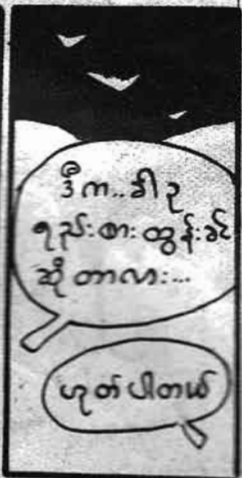 ဒီက..ခါဥ
ရည်းစား ထွန်းခင်
ဆိုတာလား...
ဟုတ်ပါတယ်